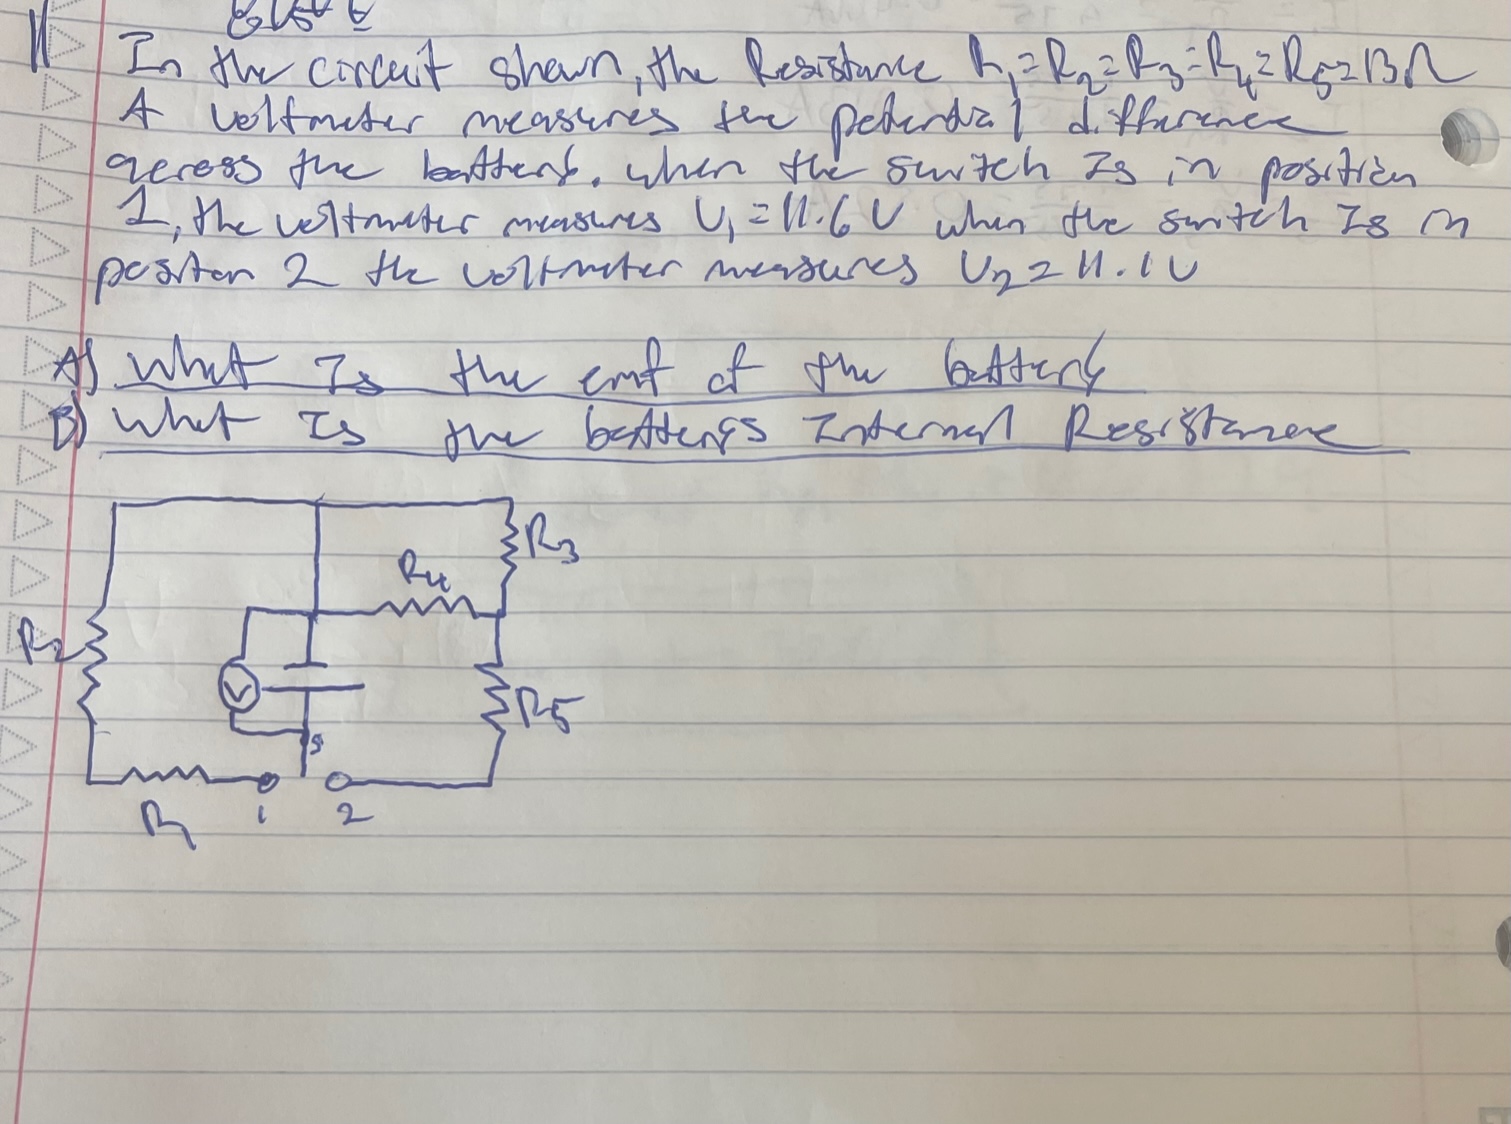 11
In the circuit shown, the Resistance R₁=R₂=R₃=R₄=R₅=13Ω
A voltmeter measures the potential difference
across the battery. when the switch Is in position
1, the voltmeter measures V₁=11.6V when the switch Is in
positon 2 the voltmeter measures V₂=11.1V
A) what Is the emf of the battery
B) what Is the batterys Internal Resistance
R₃
R₄
R₂
V
R₅
S
1
2
R₁